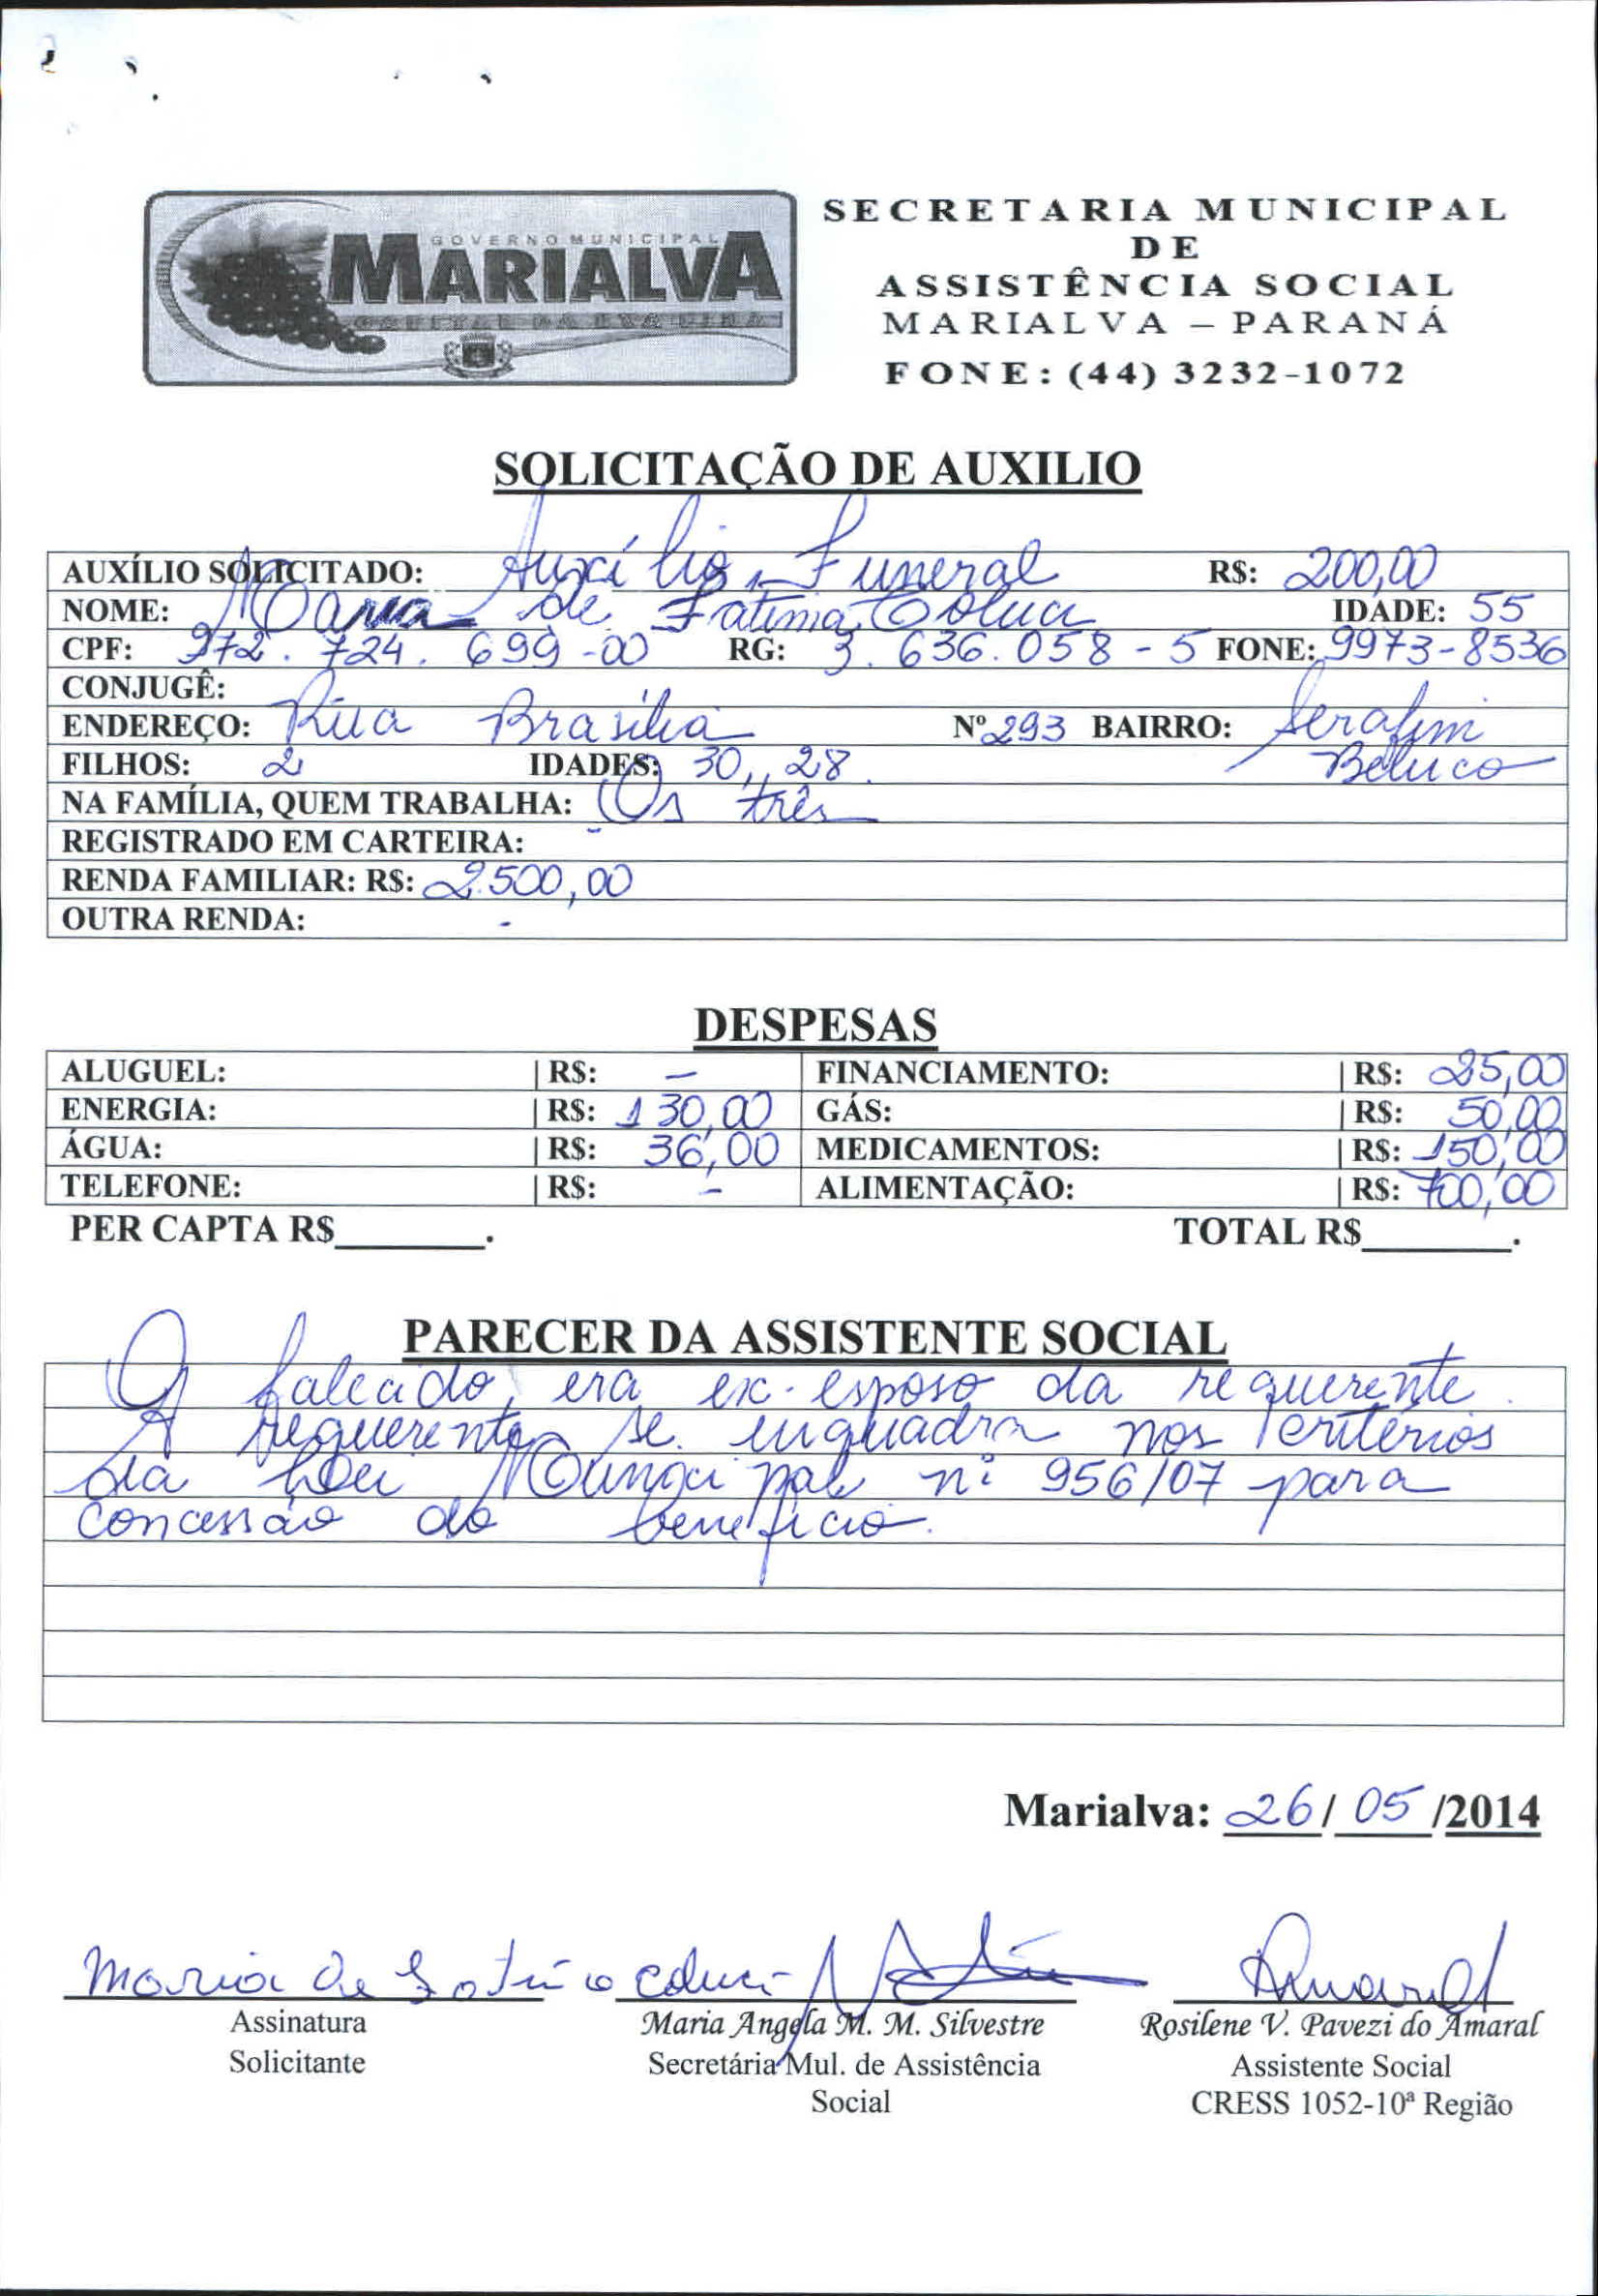 GOVERNO MUNICIPAL
MARIALVA
CAPITAL DA UVA FINA
SECRETARIA MUNICIPAL
DE
ASSISTÊNCIA SOCIAL
MARIALVA – PARANÁ
FONE: (44) 3232-1072
SOLICITAÇÃO DE AUXILIO
AUXÍLIO SOLICITADO: Auxílio Funeral R$: 200,00
NOME: Maria de Fatima Coluci IDADE: 55
CPF: 972.724.699-00 RG: 3.636.058-5 FONE: 9973-8536
CONJUGÊ:
ENDEREÇO: Rua Brasilia Nº 293 BAIRRO: Serafim
Beluco
FILHOS: 2 IDADES: 30, 28.
NA FAMÍLIA, QUEM TRABALHA: Os três
REGISTRADO EM CARTEIRA: -
RENDA FAMILIAR: R$: 2.500,00
OUTRA RENDA: -
DESPESAS
ALUGUEL: | R$: - FINANCIAMENTO: | R$: 25,00
ENERGIA: | R$: 130,00 GÁS: | R$: 50,00
ÁGUA: | R$: 36,00 MEDICAMENTOS: | R$: 150,00
TELEFONE: | R$: - ALIMENTAÇÃO: | R$: 700,00
PER CAPTA R$_______. TOTAL R$_______.
PARECER DA ASSISTENTE SOCIAL
O falecido, era ex-esposo da requerente.
A requerente se enquadra nos critérios
da Lei Municipal nº 956/07 para
concessão do benefício.
Marialva: 26/ 05 /2014
Maria de Fatima Coluci
Assinatura
Solicitante
Maria Angela M. M. Silvestre
Secretária Mul. de Assistência
Social
Amaral
Rosilene V. Pavezi do Amaral
Assistente Social
CRESS 1052-10ª Região